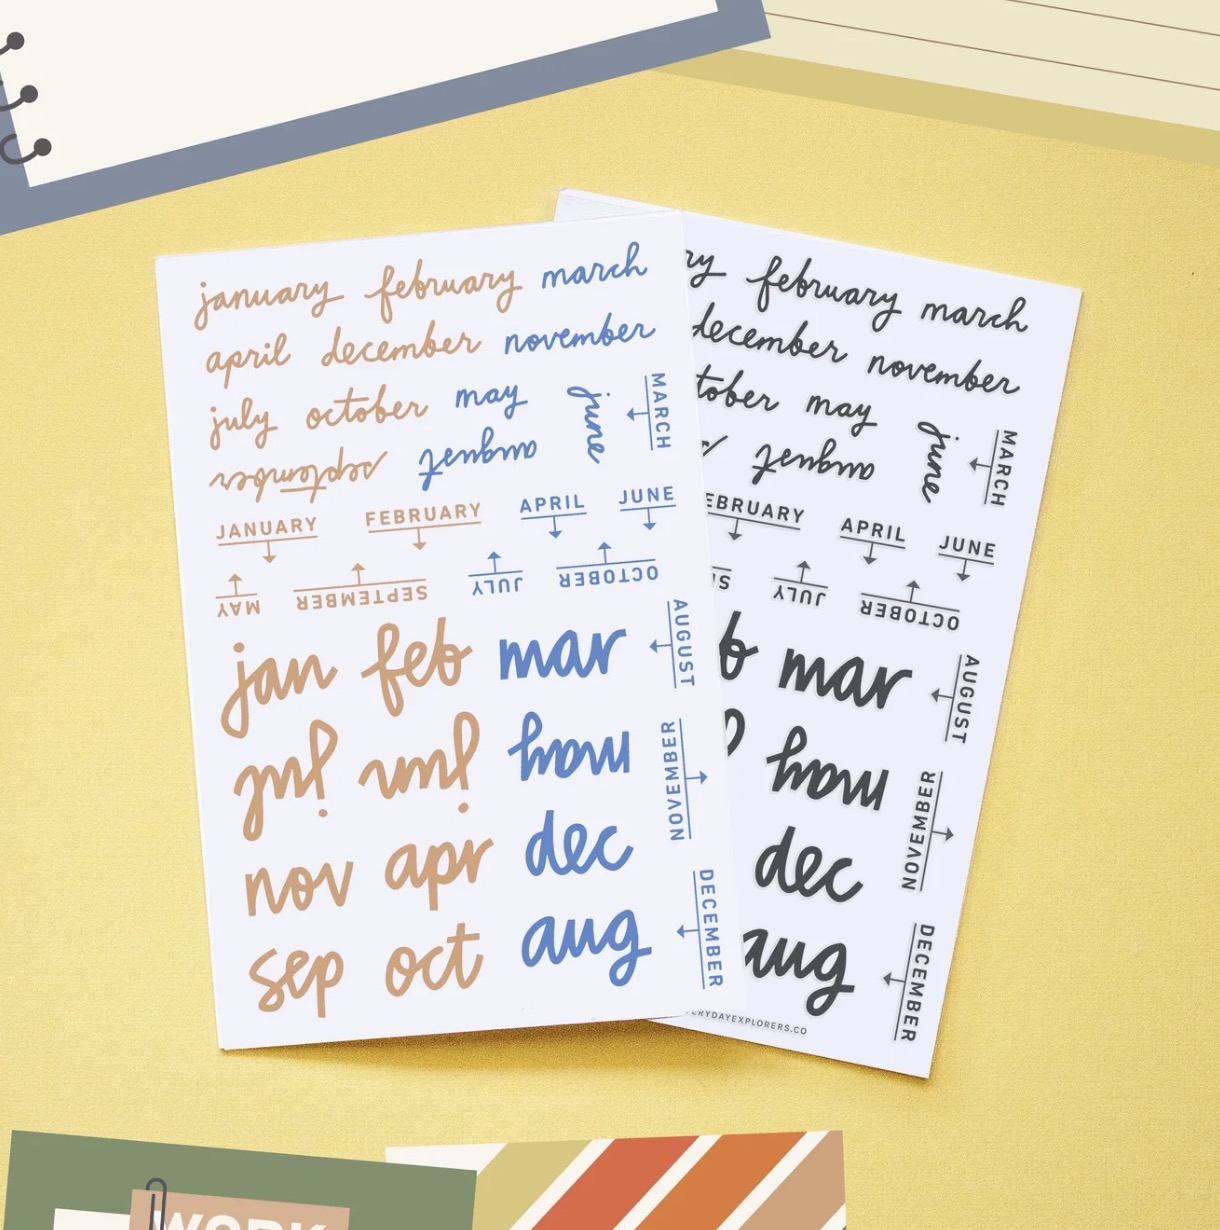 january february march
april december november
july october may june MARCH
september august
JANUARY FEBRUARY APRIL JUNE
MAY SEPTEMBER JULY OCTOBER
jan feb mar AUGUST
jul jun may NOVEMBER
nov apr dec DECEMBER
sep oct aug
ry february march
december november
tober may june MARCH
august
EBRUARY APRIL JUNE
JULY OCTOBER
b mar AUGUST
may NOVEMBER
dec
aug DECEMBER
ERYDAYEXPLORERS.CO
WORK